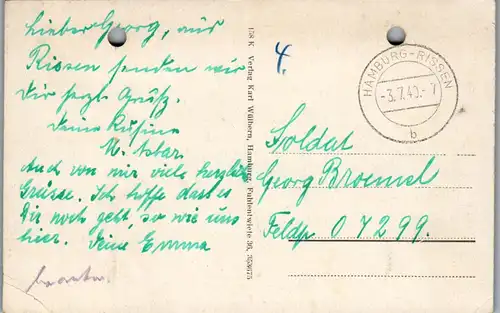 Lieber Georg, aus
Rissen senden wir
Dir herzl. Grüße.
Deine Kusine
Auch von mir viele herzliche
Grüsse. Ich hoffe dass es
Dir noch geht, so wie uns
hier. Deine Emma
178 K Verlag Karl Wülbern, Hamburg, Fuhlentwiete 36,
4.
HAMBURG-RISSEN
-3.7.40.-7
b
Soldat
Georg Broemel
Feldp 07299.